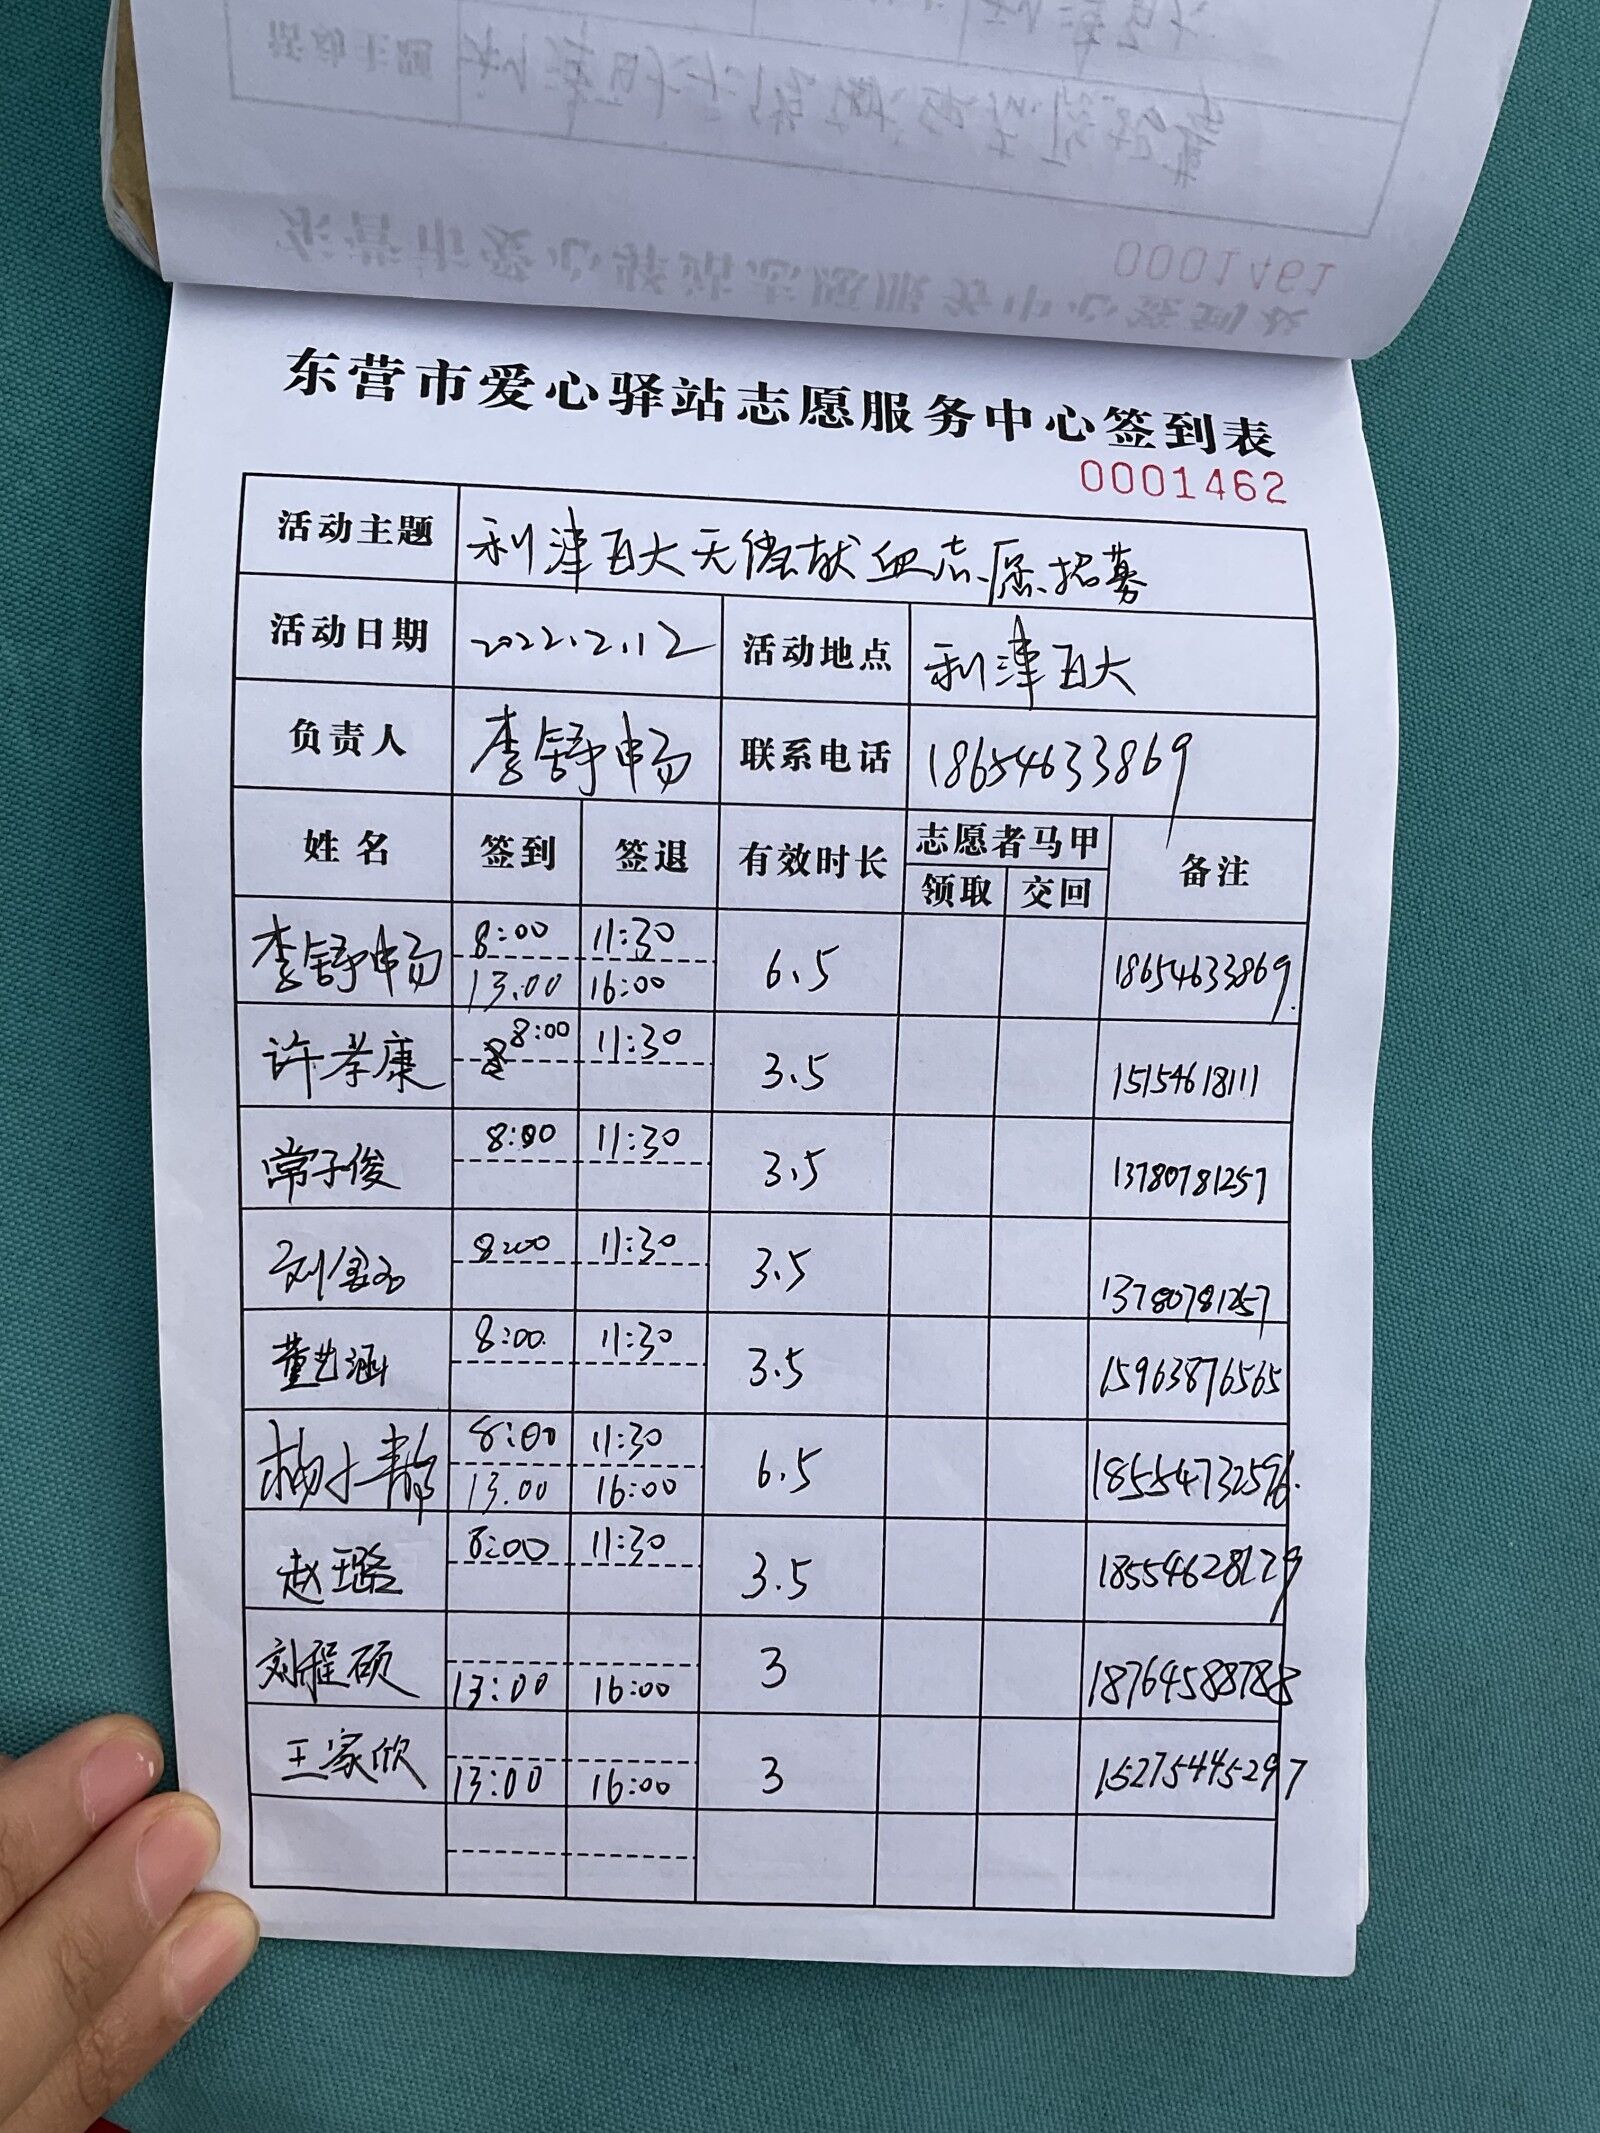 0001461
东营市爱心驿站志愿服务中心签到表
0001462
活动主题 利津百大无偿献血志愿招募
活动日期 2022.2.12 活动地点 利津百大
负责人 李舒畅 联系电话 18654633869
姓名 签到 签退 有效时长 志愿者马甲 备注
领取 交回
李舒畅 8:00 11:30 6.5 18654633869.
13.00 16:00
许孝康 8:00 11:30 3.5 15154618111
常子俊 8:00 11:30 3.5 13780781257
刘 8:00 11:30 3.5 13780781257
董艺涵 8:00. 11:30 3.5 15963876565
杨小静 8:00 11:30 6.5 18554732596.
13.00 16:00
赵璐 8:00 11:30 3.5
刘程硕 13:00 16:00 3 18764588788
王家欣 13:00 16:00 3 15275445297